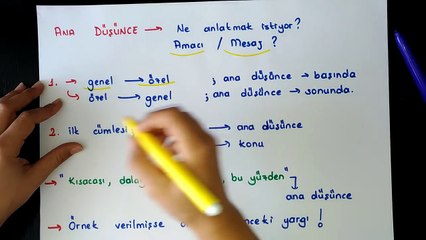 ANA DÜŞÜNCE → Ne anlatmak istiyor?
Amacı / Mesaj ?
1. → genel → özel ; ana düşünce → başında
↳ özel → genel ; ana düşünce → sonunda.
2. ilk cümlesi → ana düşünce
→ konu
→ "Kısacası, bu yüzden"
ana düşünce
→ Örnek verilmişse önceki yargı !